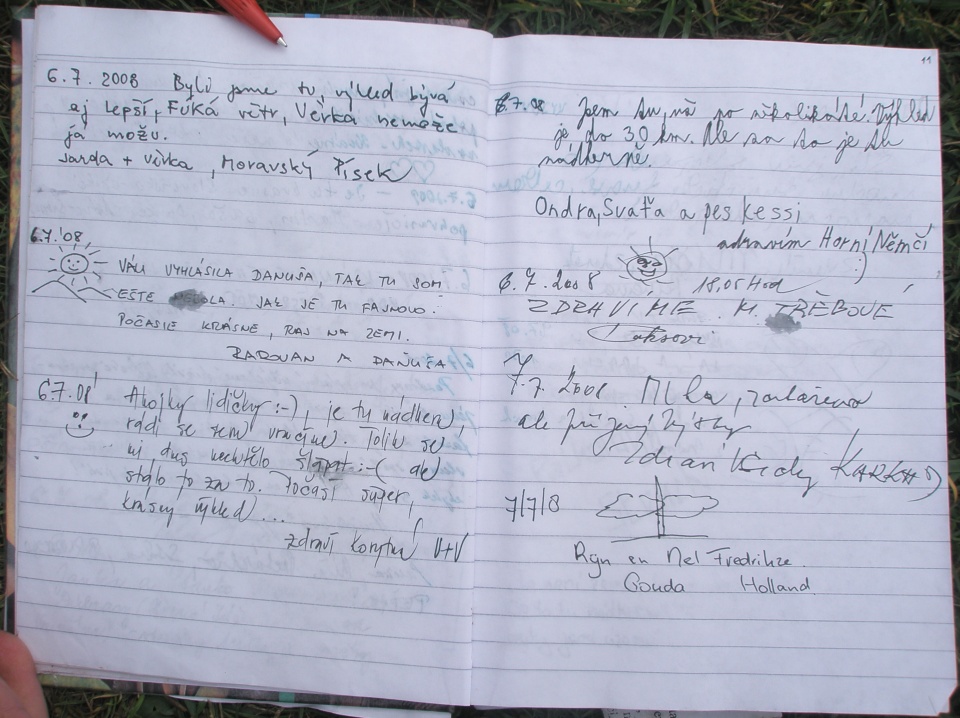 6.7.2008 Byli jsme tu, výhled bývá
aj lepší, Fúká větr, Věrka nemože
já možu.
Jarda + Věrka, Moravský Písek
6.7.'08
VÁCI VYHLÁSILA DANUŠA, TAK TU SOM
EŠTE JAK JE TU FAJNOLO.
POČASIE KRÁSNE, RAJ NA ZEMI.
RADOVAN A DANUŠA
6.7.08 Ahojky lidičky :-), je tu nádhera,
rádi se sem vracíme. Tolik se
mi dnes nechtělo šlapat :-( ale
stálo to za to. Počasí super,
krásný výhled...
zdraví Korytná V+V
11
6.7.08 Jsem tu, už po několikáté. Výhled
je do 30 km. Ale za to je tu
nádherně.
Ondra, Svaťa a pes Kessi
zdravím Horní Němčí
:)
6.7.2008 18,05 Hod
ZDRAVÍME M. TŘEBOVÉ
7.7.2008 Mlha, zataženo
ale
7/7/8
Rijn en Nel Fredrikze.
Gouda Holland